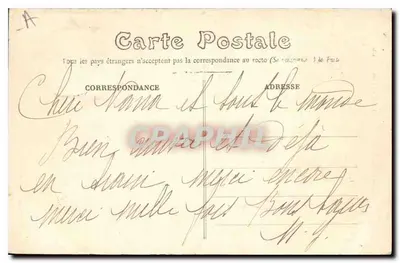 A
Carte Postale
Tous les pays étrangers n'acceptent pas la correspondance au recto (Se
CORRESPONDANCE
ADRESSE
Cheri Nana et tous le monde
CPARAMA
Bien et déjà
en main merci encore
merci mille fois Bons
M. J.